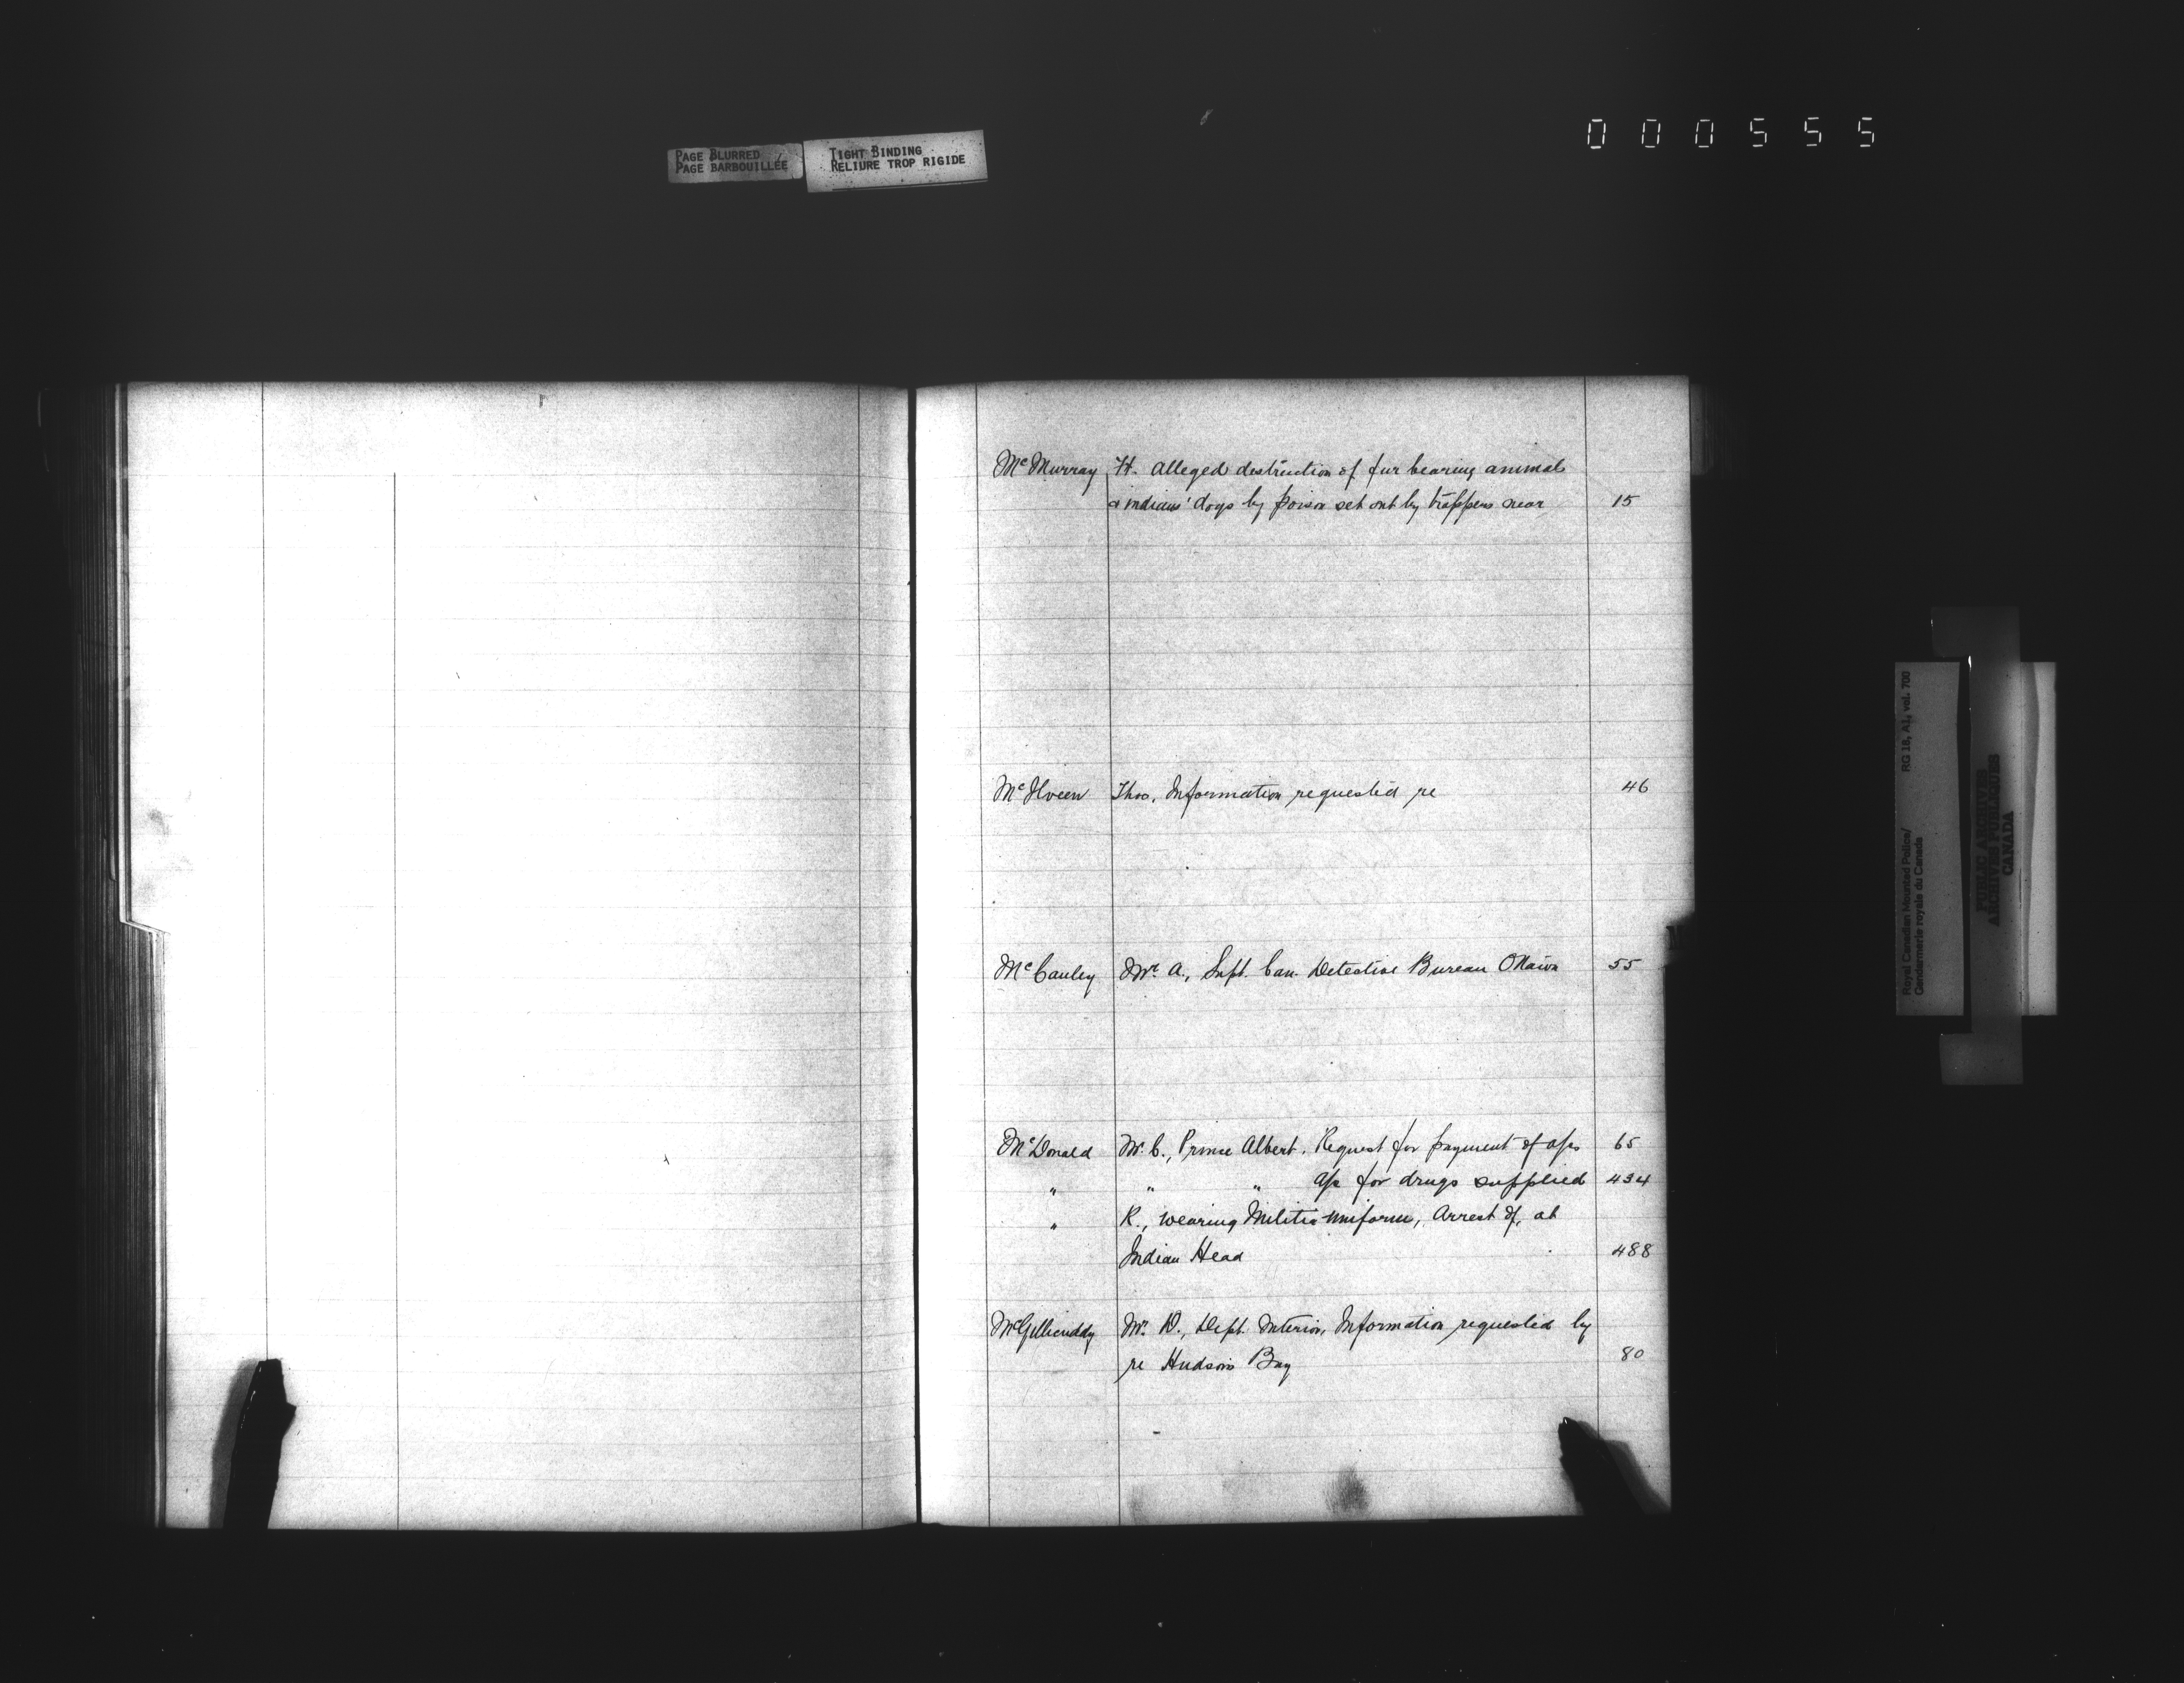 000555
PAGE BLURRED
PAGE BARBOUILLÉE
TIGHT BINDING
RELIURE TROP RIGIDE
McMurray Ft. alleged destruction of fur bearing animals
& indians' dogs by poison set out by trappers near 15
McIlveen Thos. Information requested re 46
McCauley Mr. A., Supt. Can. Detective Bureau Ottawa 55
McDonald Mr. C., Prince Albert. Request for payment of a/cs 65
" " " a/c for drugs supplied 434
" R., wearing Militia uniform, Arrest of, at
Indian Head 488
McGillicuddy Mr. D., Dept. Interior, Information requested by
re Hudson's Bay 80
Royal Canadian Mounted Police/ RG 18, A1, vol. 700
Gendarmerie royale du Canada
PUBLIC ARCHIVES
ARCHIVES PUBLIQUES
CANADA